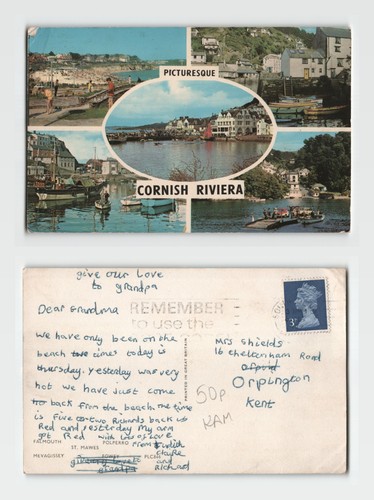 PICTURESQUE
CORNISH RIVIERA
give our love
to grandpa
Dear Grandma
REMEMBER
to use the
We have only been on the
beach two times today is
thursday. Yesterday was very
hot we have just come
back from the beach. the time
is Five to two Richards back is
Red and yesterday My arm
got Red with lots of love
From
Claire
and
Richard
PRINTED IN GREAT BRITAIN
FALMOUTH
POLPERRO
ST. MAWES
MEVAGISSEY
FOWEY
3P
Mrs Shields
16 cheltenham Road
Orpington
Kent
50p
KAM